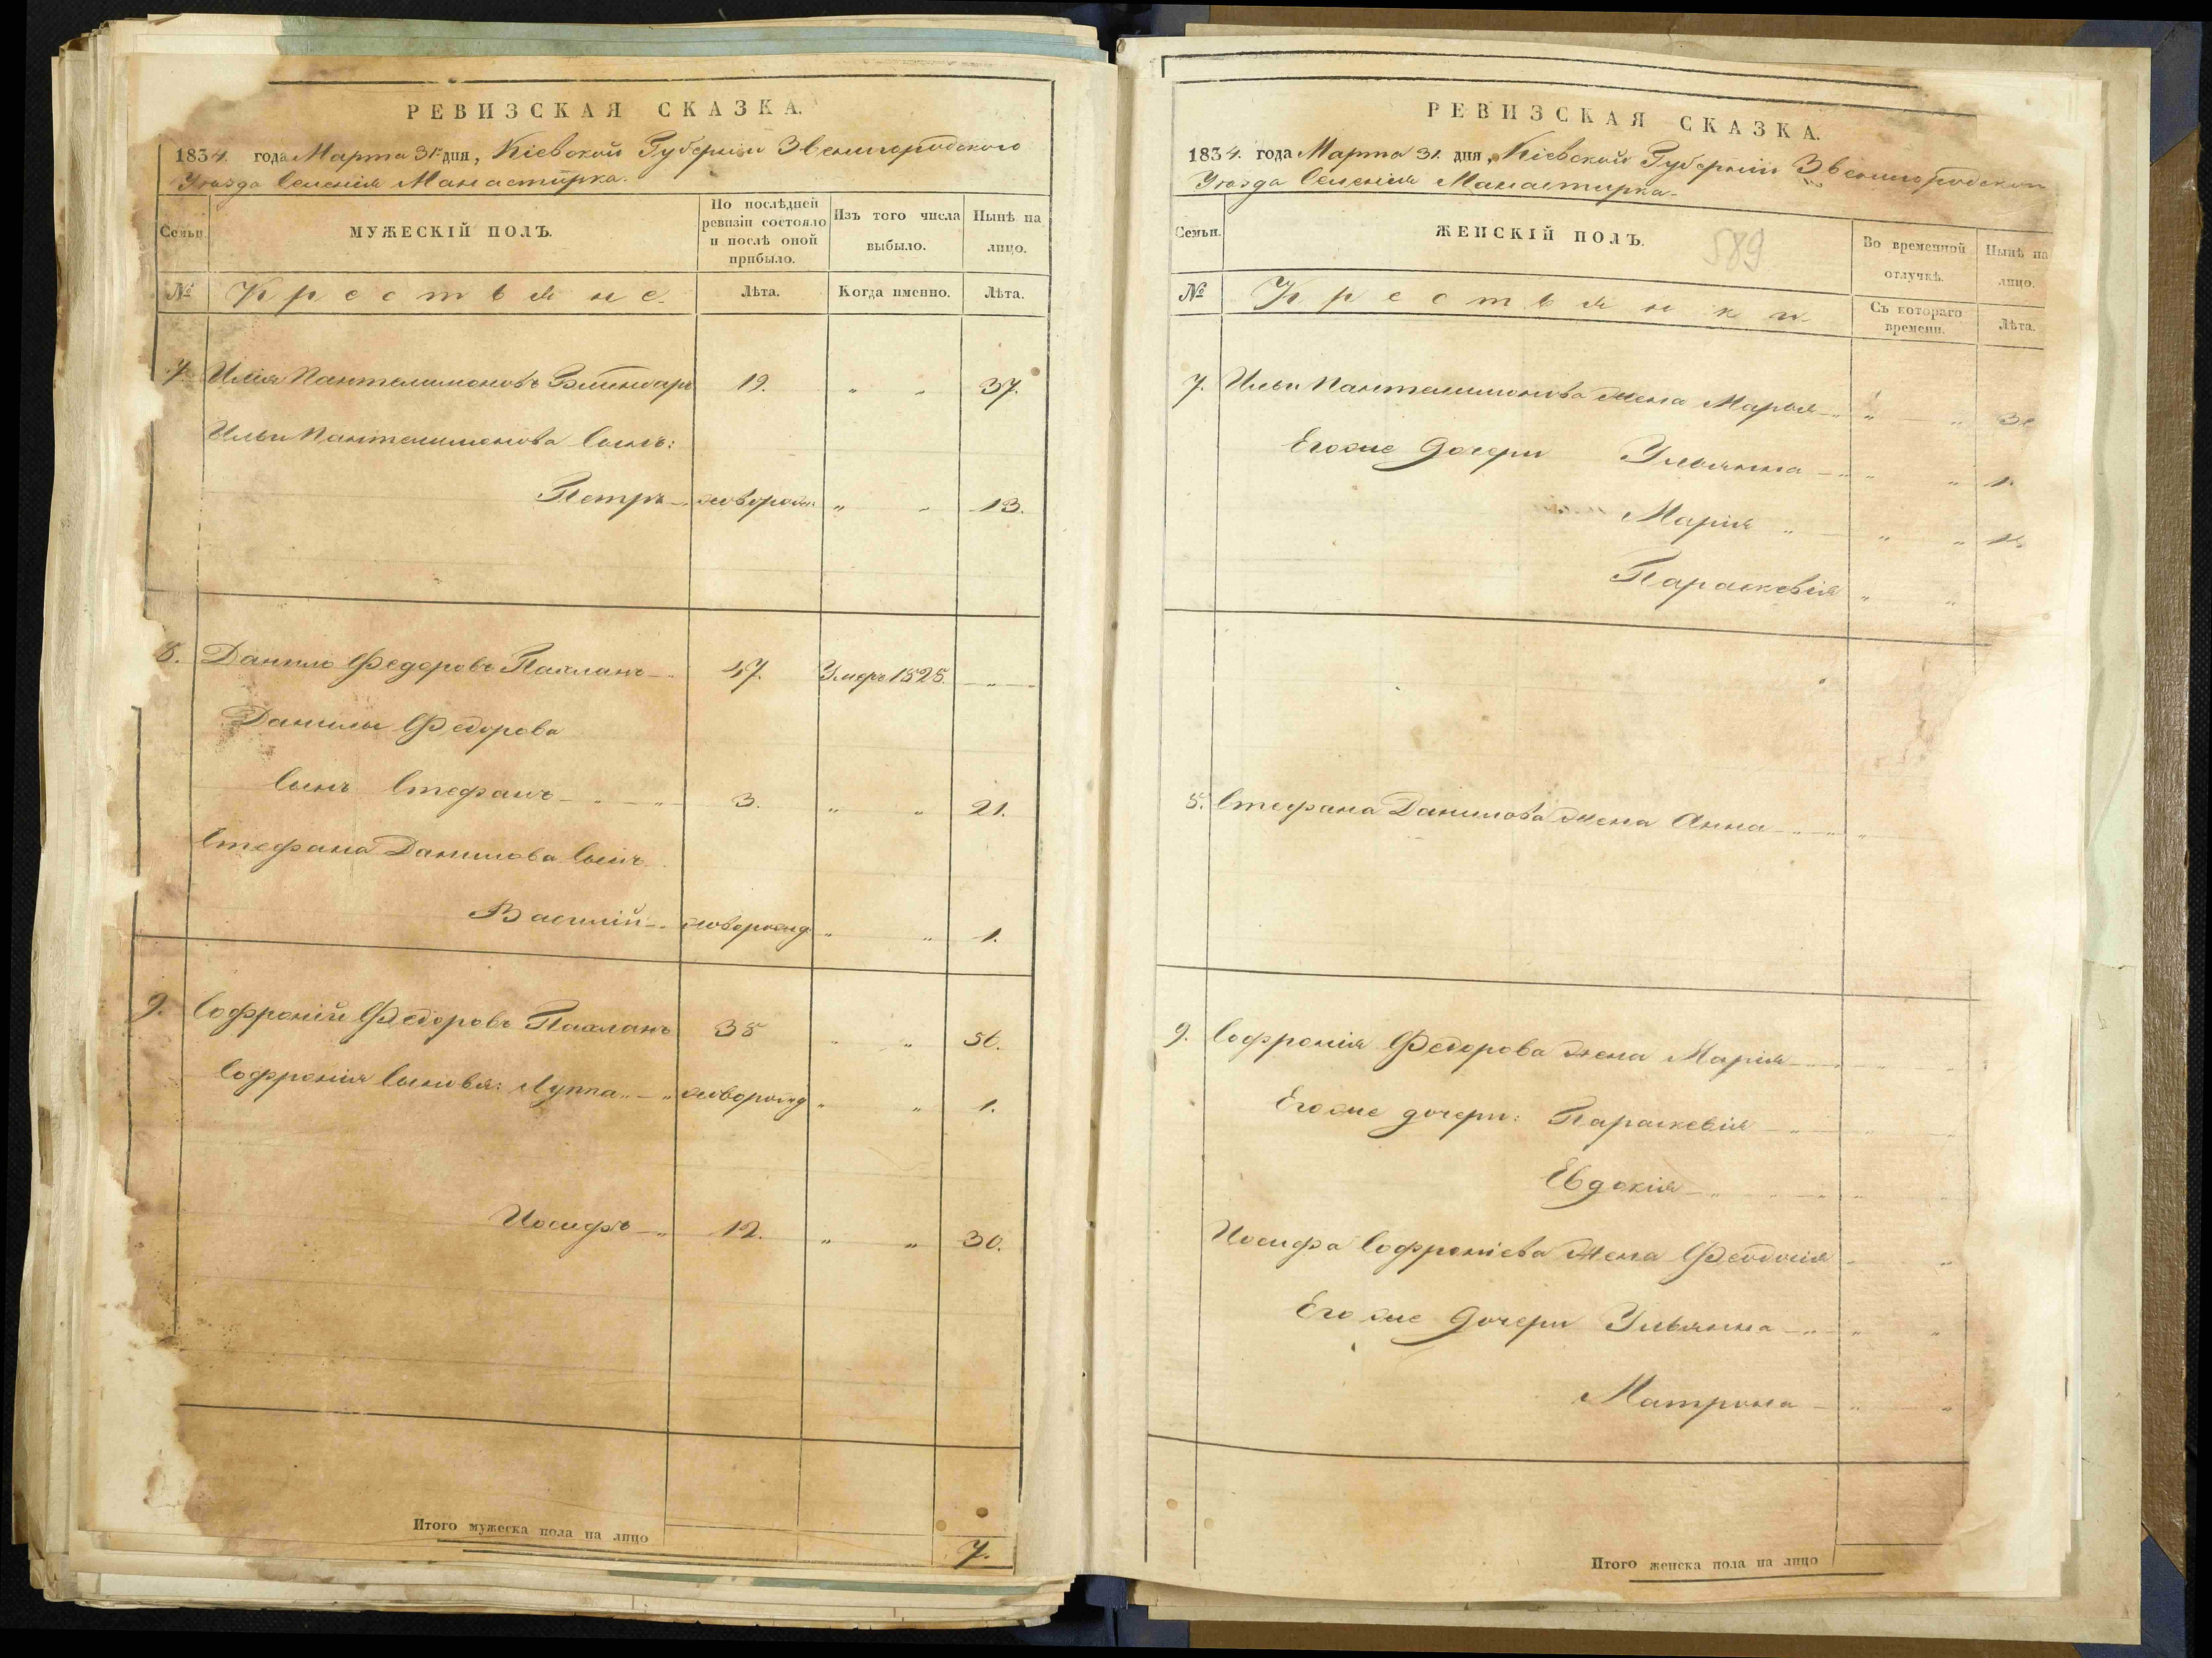 РЕВИЗСКАЯ СКАЗКА.
1834. года Марта 31 дня, Кіевской Губерніи Звенигородского
Уѣзда Селенія Манастирка.
Семьи.
МУЖЕСКІЙ ПОЛЪ.
По послѣдней ревизіи состояло и послѣ оной прибыло.
Изъ того числа выбыло.
Нынѣ на лицо.
№ Крестьяне.
Лѣта. Когда именно. Лѣта.
7. Илія Пантелимоновъ 19. „ „ 37.
Ильи Пантелимонова Сынъ:
Петръ новорож: „ „ 13.
8. Данило Федоровъ Пахланъ 47. Умеръ 1825. „
Данилы Федорова
Сынъ Стефанъ „ „ 3. „ „ 21.
Стефана Данилова Сынъ
Василій новорожд „ „ 1.
9. Софроній Федоровъ Пахланъ 38 „ „ 56.
Софронія Сыновья: Луппа „ „ новорожд „ „ 1.
Іосифъ „ 12. „ „ 30.
Итого мужеска пола на лицо 7.
РЕВИЗСКАЯ СКАЗКА.
1834. года Марта 31. дня, Кіевской Губерніи Звенигородского
Уѣзда Селенія Манастирка.
589
Семьи.
ЖЕНСКІЙ ПОЛЪ.
Во временной отлучкѣ.
Нынѣ на лицо.
№ Крестьянки
Съ котораго времени.
Лѣта.
7. Ильи Пантелимонова жена Марья „ „ „
Его же дочери Ульянна „ „ „
Марія „ „ „
Параскевія „ „
8. Стефана Данилова жена Анна „ „ „
9. Софронія Федорова жена Марія
Его же дочери: Параскевія
Евдокія
Іосифа Софроніева жена Феодосія „ „
Его же дочери Ульянна „ „ „
Матрона „ „
Итого женска пола на лицо